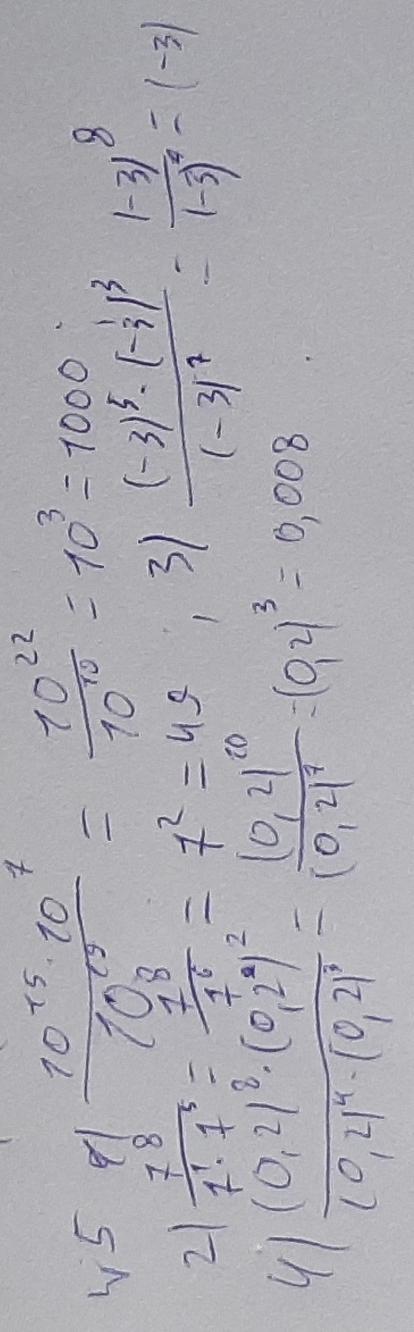 №5 1) \frac{10^{15} \cdot 10^7}{10^{19}} = \frac{10^{22}}{10^{19}} = 10^3 = 1000
2) \frac{7^8}{7^1 \cdot 7^5} = \frac{7^8}{7^6} = 7^2 = 49 , 3) \frac{(-3)^5 \cdot (-3)^3}{(-3)^7} = \frac{(-3)^8}{(-3)^7} = (-3)
4) \frac{(0,2)^8 \cdot (0,2)^2}{(0,2)^4 \cdot (0,2)^3} = \frac{(0,2)^{10}}{(0,2)^7} = (0,2)^3 = 0,008